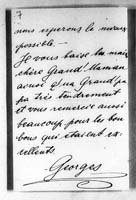 7
nous esperons le mieux
possible —
Je vous baise les mains
chère Grand'Maman
aussi à Grandpa
pa très tendrement
et vous remercie aussi
beaucoup pour les bon
bons qui étaient ex-
cellents
Georges